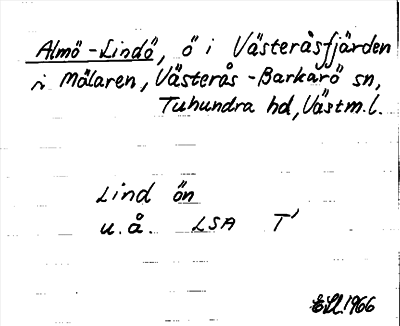 Almö-Lindö, ö i Västeråsfjärden
i Mälaren, Västerås-Barkarö sn,
Tuhundra hd, Västm.l.
Lind ön
u.å. LSA T'
1966